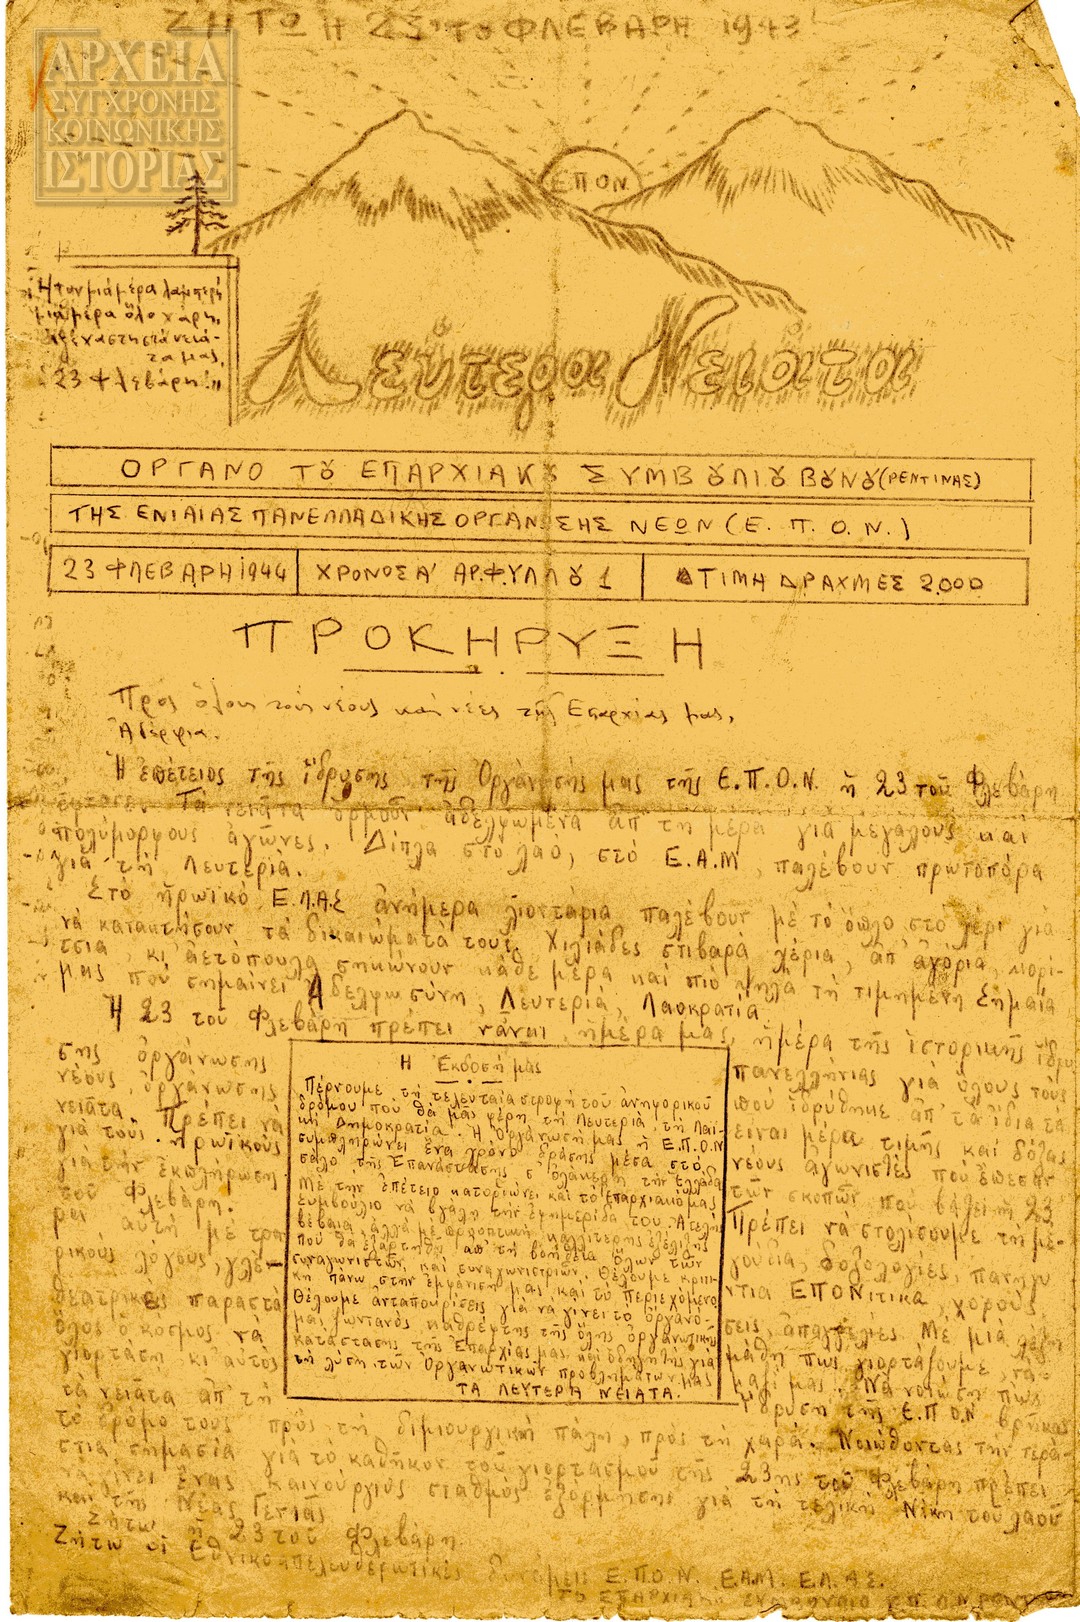 ΖΗΤΩ Η 23 τȣ ΦΛΕΒΑΡΗ 1943!
ΑΡΧΕΙΑ
ΣΥΓΧΡΟΝΗΣ
ΚΟΙΝΩΝΙΚΗΣ
ΙΣΤΟΡΙΑΣ
ΕΠΟΝ
Ἦταν μιὰ μέρα λαμπερή
μιὰ μέρα ὅλο χάρη,
ἀξέχαστη στὰ νειά-
τα μας,
23 Φλεβάρη!
Λεύτερα Νειάτα
ΟΡΓΑΝΟ Τȣ ΕΠΑΡΧΙΑΚȣ ΣΥΜΒȣΛΙȣ ΒȣΝȣ (ΡΕΝΤΙΝΗΣ)
ΤΗΣ ΕΝΙΑΙΑΣ ΠΑΝΕΛΛΑΔΙΚΗΣ ΟΡΓΑΝΩΣΗΣ ΝΕΩΝ (Ε.Π.Ο.Ν.)
23 ΦΛΕΒΑΡΗ 1944 ΧΡΟΝΟΣ Α' ΑΡ.ΦΥΛΛȣ 1 ΤΙΜΗ ΔΡΑΧΜΕΣ 2.000
ΠΡΟΚΗΡΥΞΗ
Πρὸς ὅλους τοὺς νέους καὶ νέες τῆς Ἐπαρχίας μας,
Ἀδέρφια.
Ἡ ἐπέτειος τῆς ἵδρυσης τῆς Ὀργάνωσής μας τῆς Ε.Π.Ο.Ν. ἡ 23 τοῦ Φλεβάρη
ἔφτασε. Τὰ νειᾶτα ὁρμοῦν ἀδελφωμένα ἀπ' τὴ μέρα γιὰ μεγάλους καὶ
πολύμορφους ἀγῶνες. Δίπλα στὸ λαό, στὸ Ε.Α.Μ, παλέβουν πρωτοπόρα
γιὰ τὴ Λευτεριά.
Στὸ ἡρωϊκὸ Ε.Λ.Α.Σ ἀνήμερα λιοντάρια παλέβουν μὲ τὸ ὅπλο στὸ χέρι γιὰ
νὰ κατακτήσουν τὰ δικαιώματά τους. Χιλιάδες στιβαρὰ χέρια, ἀπ' ἀγόρια, κορί-
τσια, κι' ἀετόπουλα σηκώνουν κάθε μέρα καὶ πιὸ ψηλὰ τὴ τιμημένη Σημαία
μας ποὺ σημαίνει Ἀδελφωσύνη, Λευτεριά, Λαοκρατία.
Ἡ 23 τοῦ Φλεβάρη πρέπει νἆναι ἡμέρα μας, ἡμέρα τῆς ἱστορικῆς ἵδρυ
σης ὀργάνωσης πανελλήνιας γιὰ ὅλους τοὺς
νέους, ὀργάνωσης ποὺ ἱδρύθηκε ἀπ' τὰ ἴδια τὰ
νειᾶτα. Πρέπει νὰ εἶναι μέρα τιμῆς καὶ δόξας
γιὰ τοὺς ἡρωϊκοὺς νέους ἀγωνιστὲς ποὺ ἔπεσαν
γιὰ τὴν ἐκπλήρωση τῶν σκοπῶν ποὺ βάζει ἡ 23
τοῦ Φλεβάρη. Πρέπει νὰ στολίσουμε τὴ μέ-
ρα αὐτὴ μὲ τρα γούδια, δοξολογίες, πανηγυ
ρικοὺς λόγους, γλέ- ντια ΕΠΟΝίτικα, χοροὺς
θεατρικὲς παραστά σεις, ἀπαγγελίες. Μὲ μιὰ λέξη
ὅλος ὁ κόσμος νὰ μάθη πως γιορτάζουμε, νὰ
γιορτάση κι' αὐτὸς μαζί μας. Νὰ νοιώση πως
τὰ νειᾶτα ἀπ' τὴ ἵδρυση τῆς Ε.Π.Ο.Ν βρῆκαν
τὸ δρόμο τους πρὸς τὴ δημιουργικὴ πάλη, πρὸς τὴ χαρά. Νοιώθοντας τὴν τερά-
στια σημασία γιὰ τὸ καθῆκον τοῦ γιορτασμοῦ τῆς 23ης τοῦ Φλεβάρη πρέπει
νὰ γίνει ἕνας καινούργιος σταθμὸς ἐξόρμησης γιὰ τὴ τελικὴ Νίκη τοῦ λαοῦ
καὶ τῆς Νέας Γενιᾶς
Ζήτω ἡ 23 τοῦ Φλεβάρη.
Ζήτω οἱ Ἐθνικοαπελευθερωτικὲς δυνάμεις Ε.Π.Ο.Ν. Ε.Α.Μ. Ε.Λ.Α.Σ.
ΤΟ ΕΠΑΡΧΙΑΚΟ ΣΥΜΒΟΥΛΙΟ Ε.Π.Ο.Ν
Ἡ Ἔκδοσή μας
Πέρνουμε τὴ τελευταία στροφὴ τοῦ ἀνηφορικοῦ
δρόμου ποὺ θὰ μᾶς φέρη τὴ Λευτεριὰ τὴ Λαϊ-
κὴ Δημοκρατία. Ἡ Ὀργάνωσή μας ἡ Ε.Π.Ο.Ν
συμπληρώνει ἕνα χρόνο δράσης μέσα στὸ
σάλο τῆς Ἐπανάστασης σ' ὁλάκερη τὴν Ἑλλάδα
Μὲ τὴν ἐπέτειο κατορθώνει καὶ τὸ ἐπαρχιακό μας
συμβούλιο νὰ βγάλη τὴν ἐφημερίδα του. Ἀτελῆ
βέβαια ἀλλὰ μὲ προοπτικὴ καλλίτερης ἐξέλιξης
ποὺ θὰ ἐξαρτηθῆ ἀπ' τὴ βοήθεια ὅλων τῶν
συναγωνιστῶν καὶ συναγωνιστριῶν. Θέλουμε κριτι-
κὴ πάνω στὴν ἐμφάνισή μας καὶ τὸ περιεχόμενο
Θέλουμε ἀνταποκρίσεις γιὰ νὰ γίνει τὸ ὄργανό-
μας ζωντανὸς καθρέφτης τῆς ὅλης ὀργανωτικῆς
κατάστασης τῆς Ἐπαρχίας μας καὶ ὁδηγητὴς γιὰ
τὴ λύση τῶν Ὀργανωτικῶν προβλημάτων μας
ΤΑ ΛΕΥΤΕΡΑ ΝΕΙΑΤΑ.